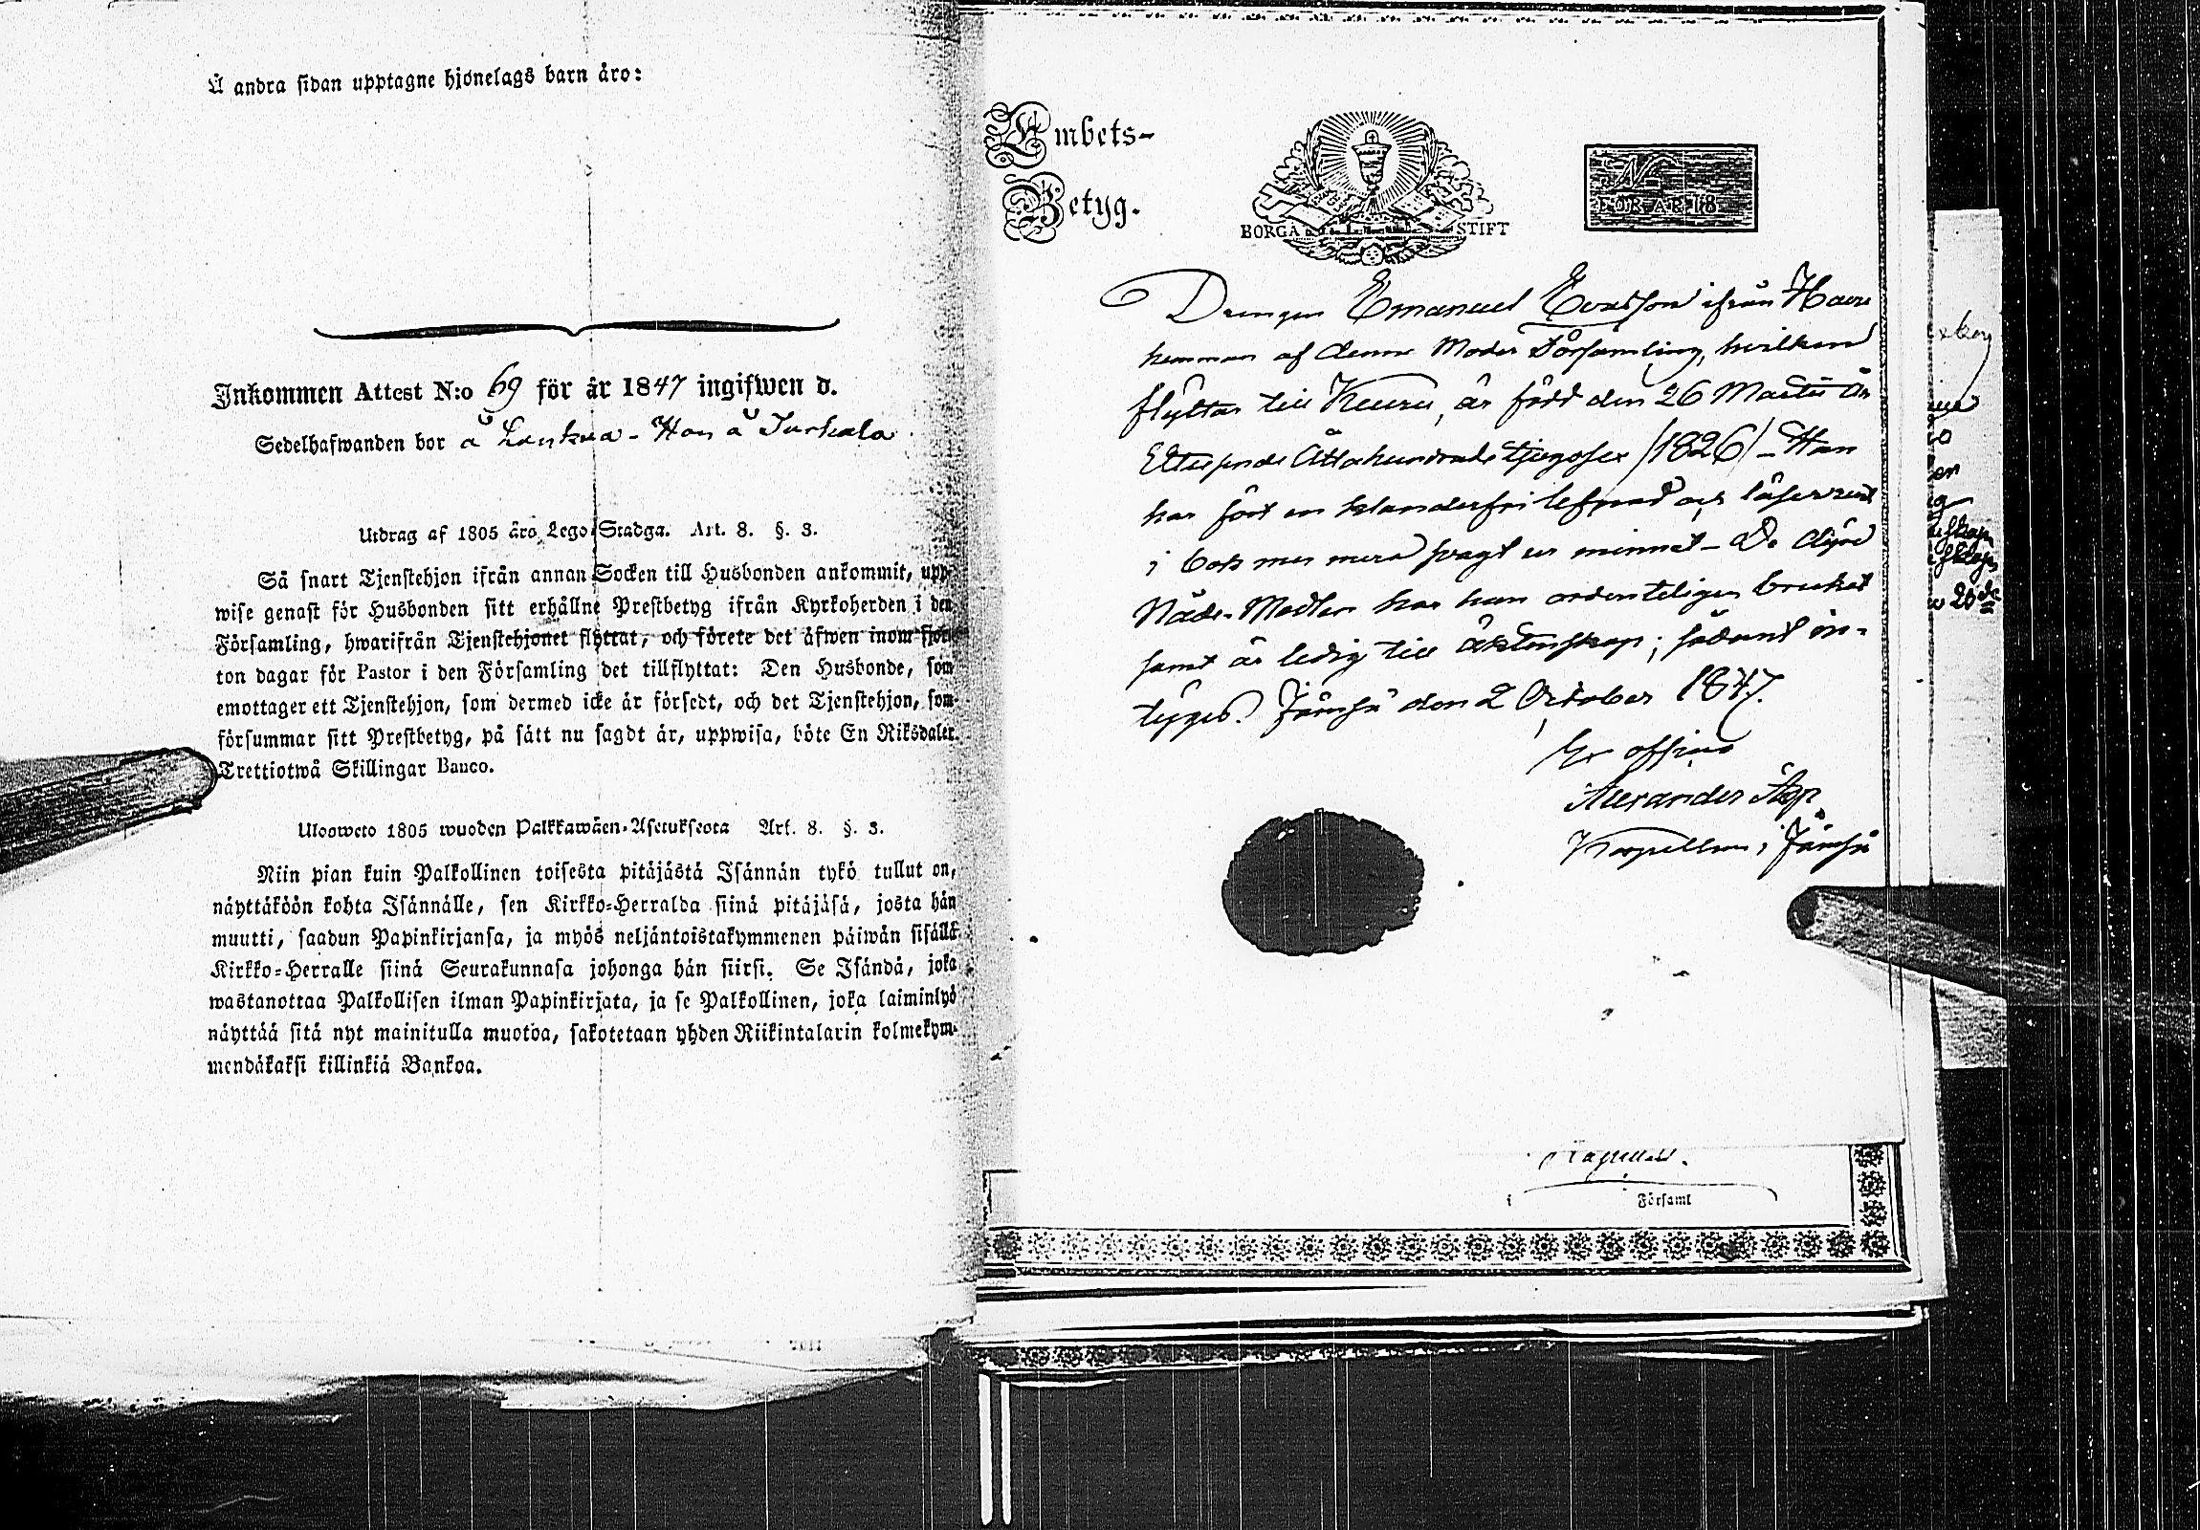 Å andra sidan upptagne hjonelags barn äro:
Inkommen Attest N:o 69 för år 1847 ingifwen d.
Sedelhafwanden bor å Lankua - Han å Turkala
Utdrag af 1805 års Lego-Stadga. Art. 8. §. 3.
Så snart Tjenstehjon ifrån annan Socken till Husbonden ankommit, upp-
wise genast för Husbonden sitt erhållne Prestbetyg ifrån Kyrkoherden i den
Församling, hwarifrån Tjenstehjonet flyttat, och förete det äfwen inom fjor-
ton dagar för Pastor i den Församling det tillflyttat: Den Husbonde, som
emottager ett Tjenstehjon, som dermed icke är försedt, och det Tjenstehjon, som
försummar sitt Prestbetyg, på sätt nu sagdt är, uppwisa, böte En Riksdaler
Trettiotwå Skillingar Banco.
Ulosweto 1805 wuoden Palkkawäen-Asetuksesta Art. 8. §. 3.
Niin pian kuin Palkollinen toisesta pitäjästä Isännän tykö tullut on,
näyttäköön kohta Isännälle, sen Kirkko-Herralda siinä pitäjäsä, josta hän
muutti, saadun Papinkirjansa, ja myös neljäntoistakymmenen päiwän sisällä
Kirkko-Herralle siinä Seurakunnasa johonga hän siirsi. Se Isändä, joka
wastanottaa Palkollisen ilman Papinkirjata, ja se Palkollinen, joka laiminlyö
näyttää sitä nyt mainitulla muotoa, sakotetaan yhden Riikintalarin kolmekym-
mendäkaksi killinkiä Bankoa.
Embets-
Betyg.
BORGÅ STIFT
N
FÖR ÅR 18
Drengen Emanuel Evasson ifrån
hemman af denna Moder Församling, hvilken
flyttar till Keuru, är född den 26 Martii År
Ettusende Åttahundrade tjugosex (1826) - Han
har fört en klanderfri lefnad och läser rent
i bok men mera svagt ur minnet - De dyra
Nåde-Medlen har han ordenteligen brukat
samt är ledig till äktenskap; sådant in-
tygas. Jämsä den 2 October 1847.
Ex officio
Alexander
Kapellan i Jämsä
Kapellan.
i Församl